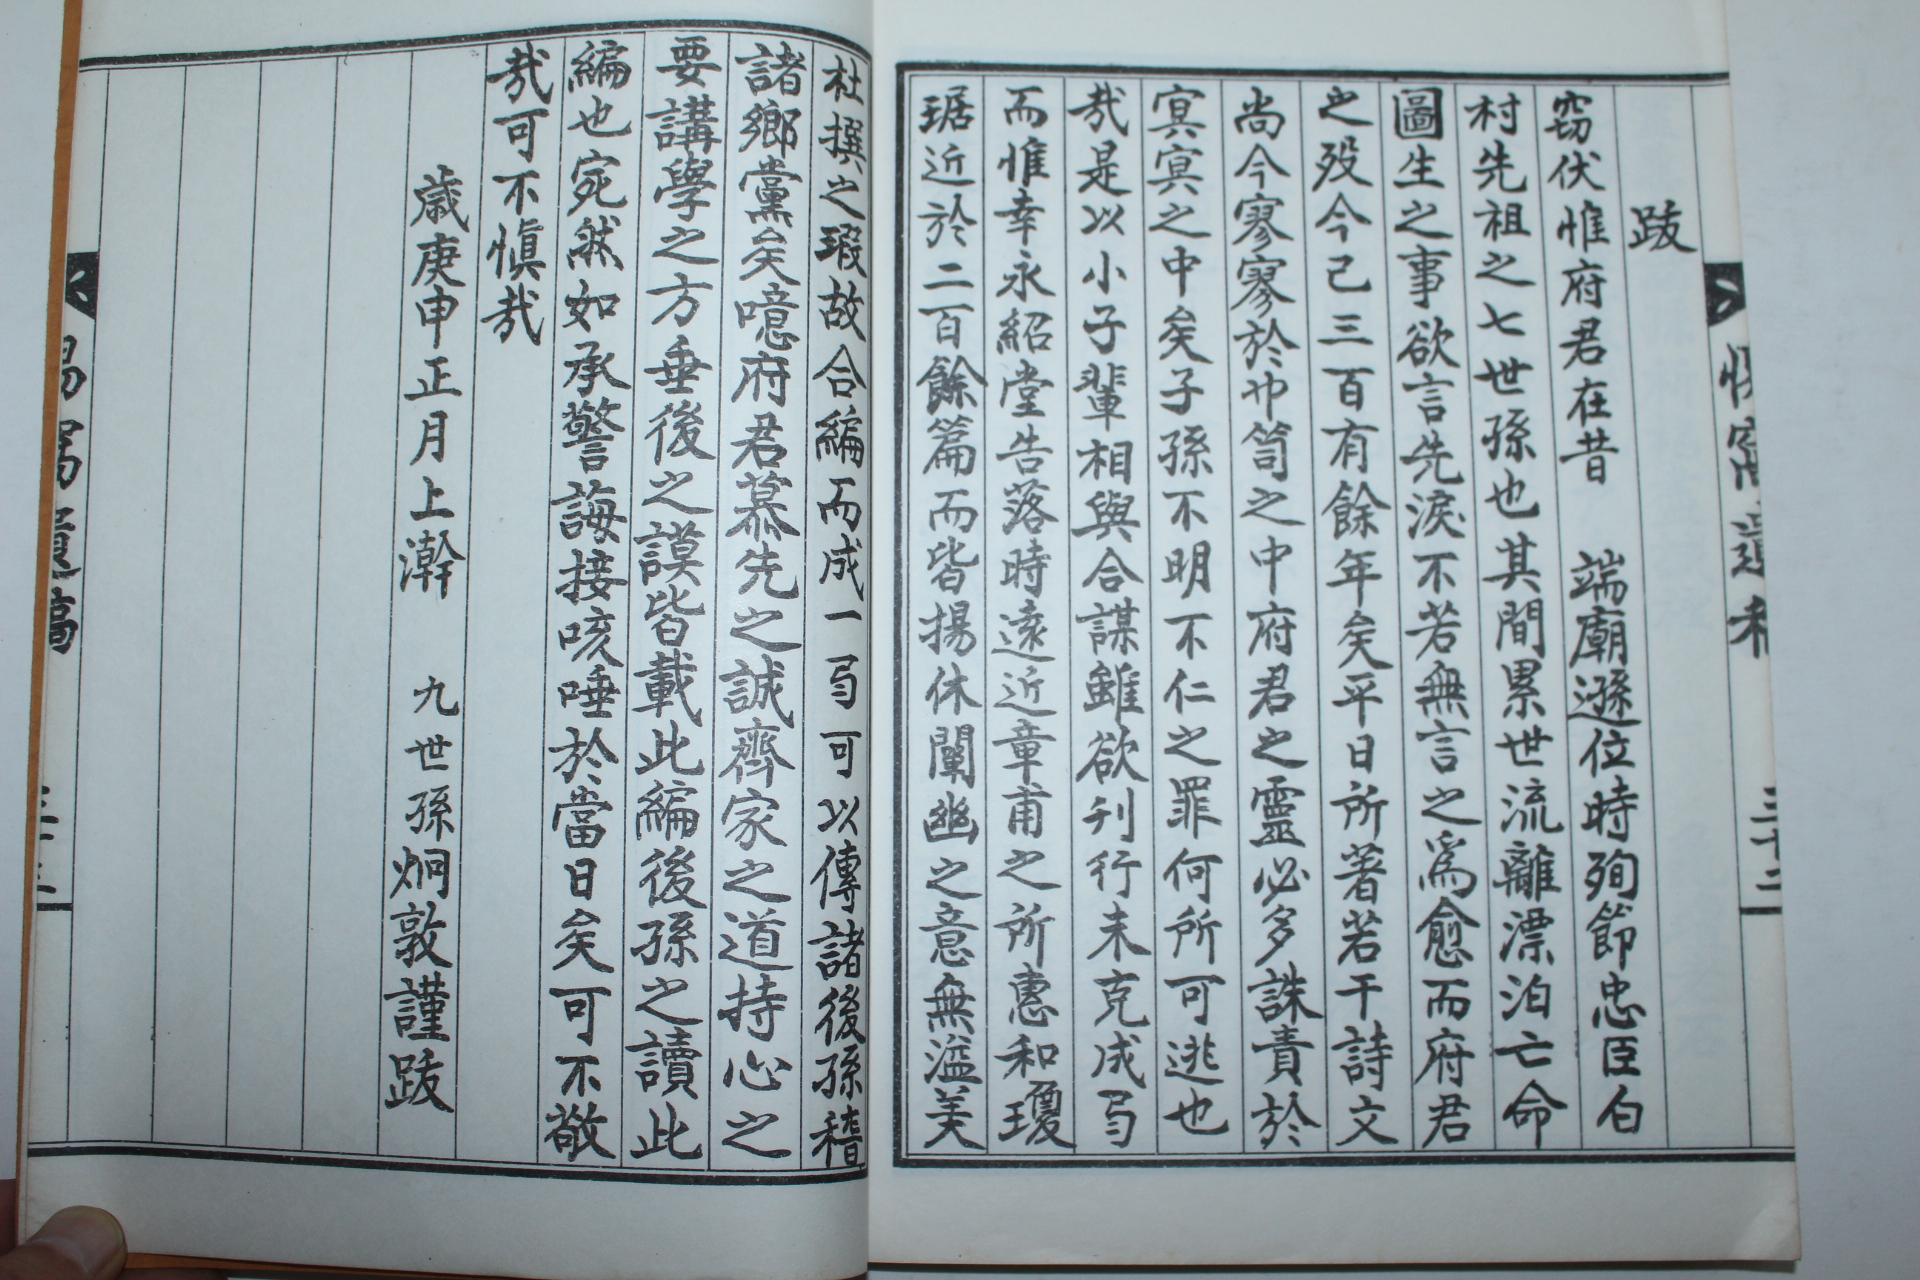 跋
竊伏惟府君在昔 端廟遜位時殉節忠臣白
村先祖之七世孫也其間累世流離漂泊亡命
圖生之事欲言先淚不若無言之爲愈而府君
之歿今已三百有餘年矣平日所著若干詩文
尚今寥寥於巾笥之中府君之靈必多誅責於
冥冥之中矣子孫不明不仁之罪何所可逃也
哉是以小子輩相與合謀雖欲刊行未克成弓
而惟幸永紹堂告落時遠近章甫之所惠和瓊
琚近於二百餘篇而皆揚休闡幽之意無溢美
杜撰之瑕故合編而成一弓可以傳諸後孫稽
諸鄉黨矣噫府君慕先之誠齊家之道持心之
要講學之方垂後之謨皆載此編後孫之讀此
編也宛然如承警誨接咳唾於當日矣可不敬
哉可不愼哉
歲庚申正月上澣 九世孫炯敦謹跋
窩遺稿
三十二